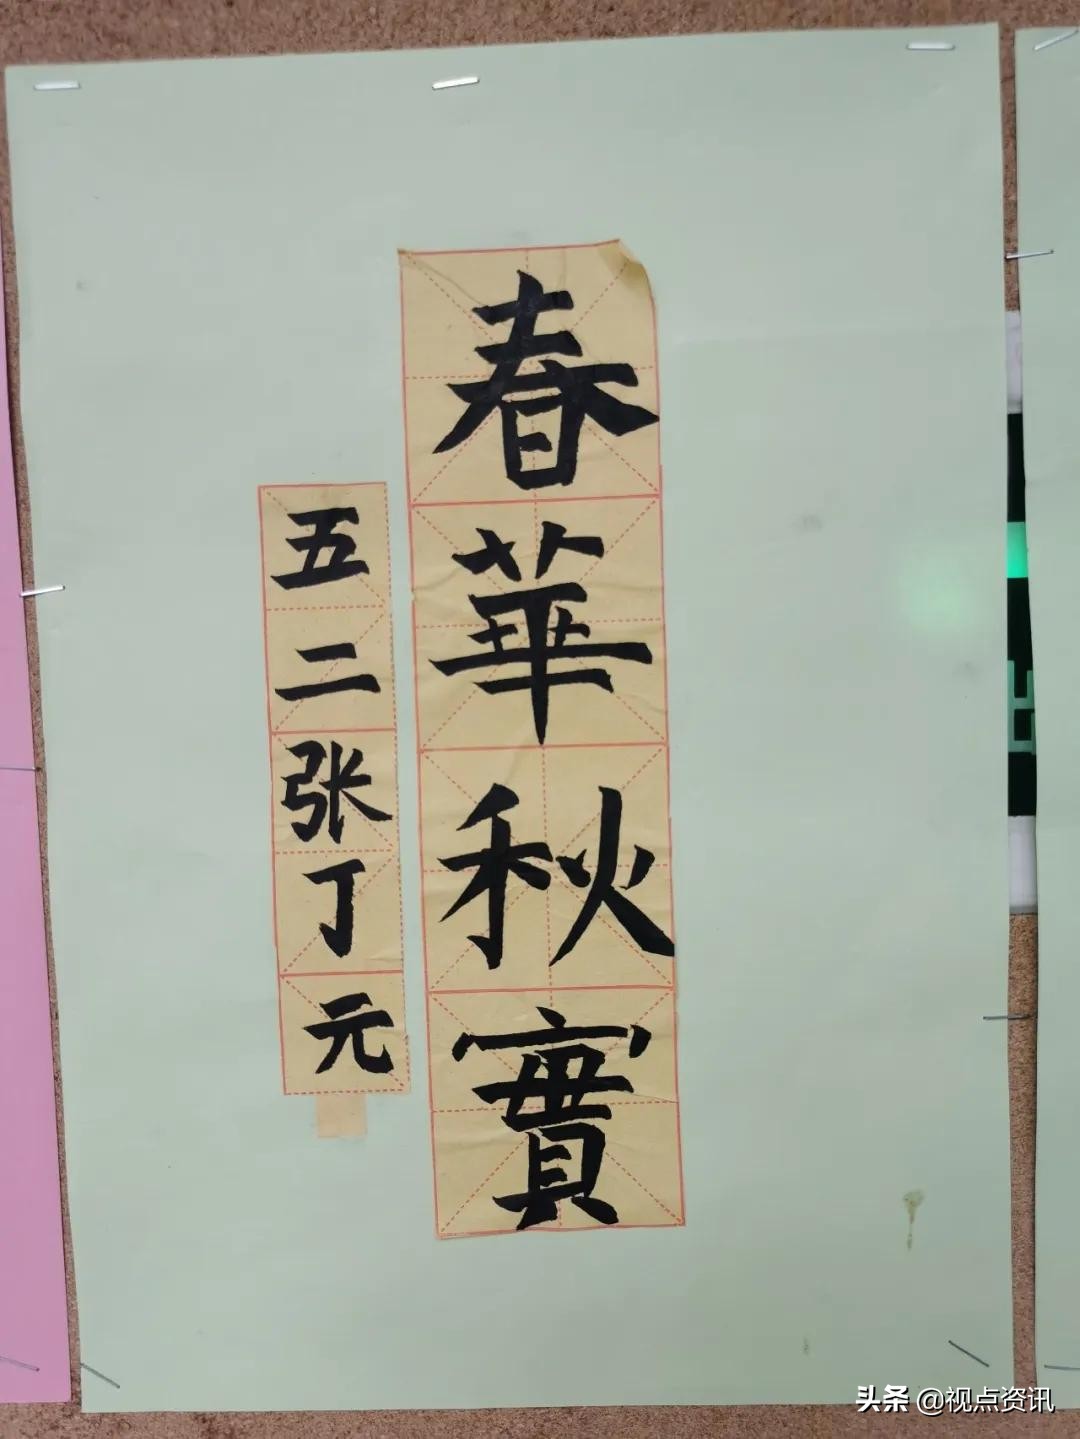 春華秋實
五二张丁元
头条 @视点资讯